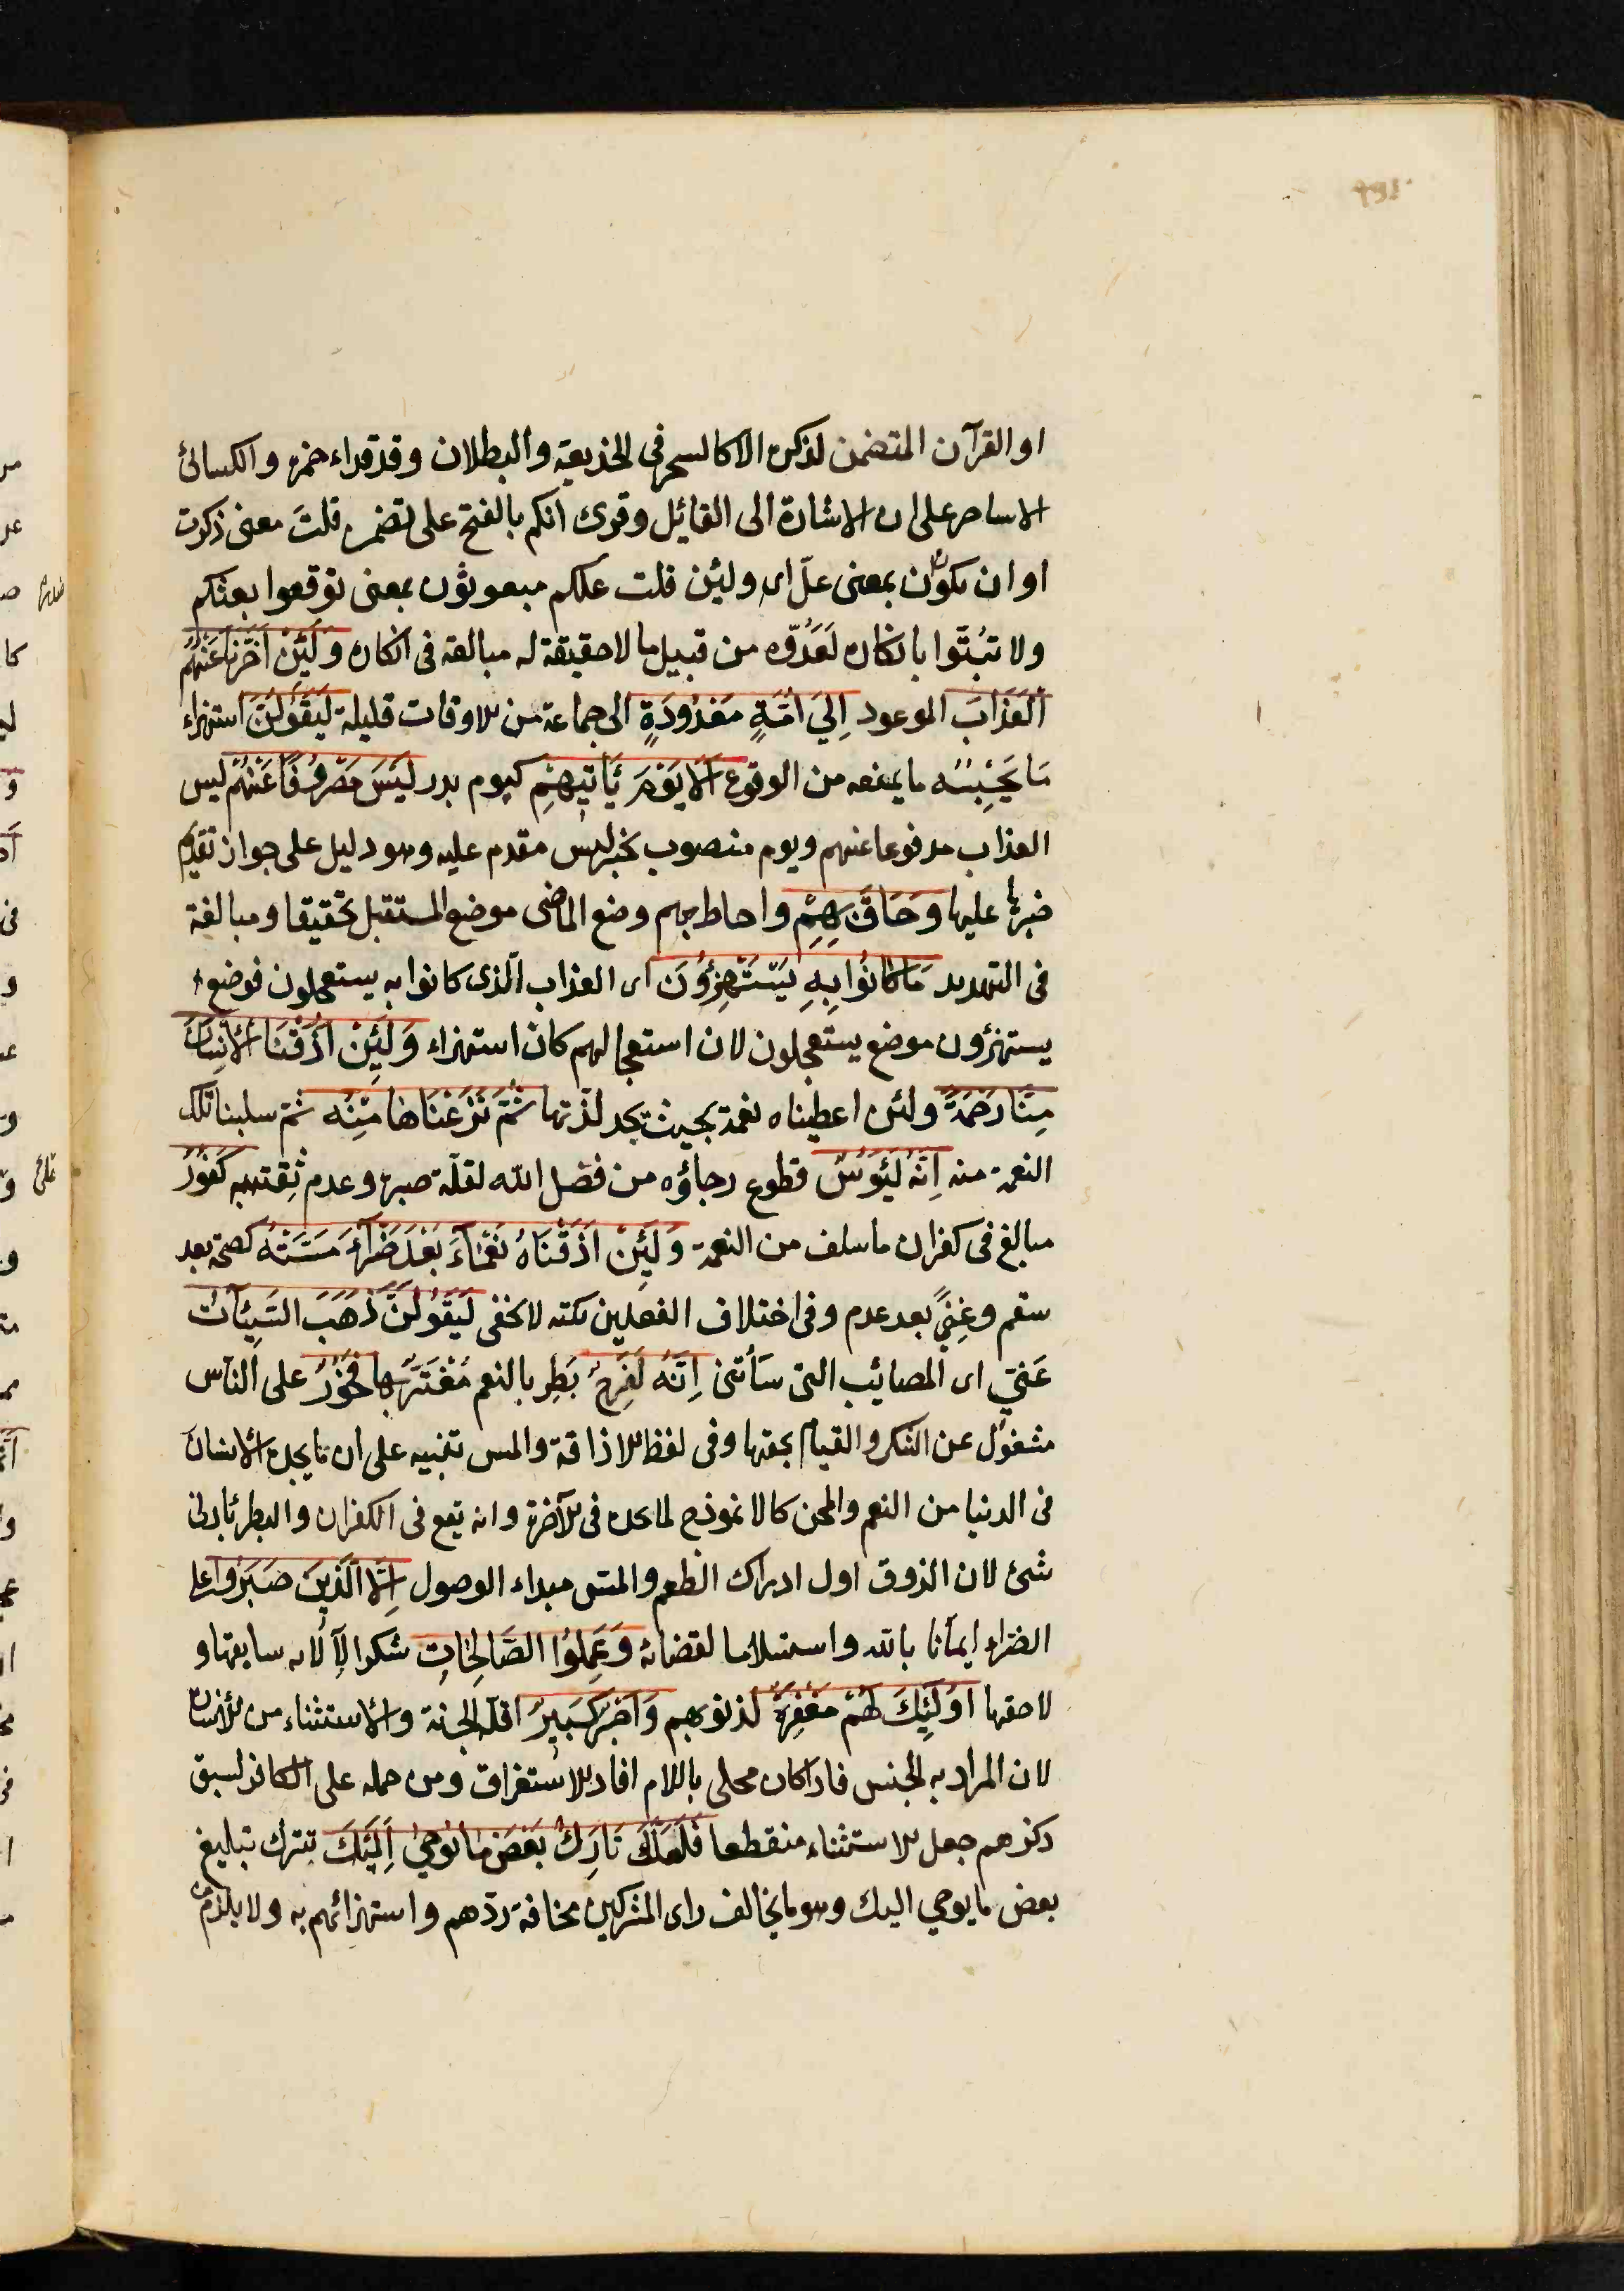 او القرآن المتضمن لذكره الا كالسحر فى الخديعة والبطلان وقد قراء حمزه والكسائى
الا ساحر على ان الاشارة الى القائل وقرئ انكم بالفتح على تضمن قلت معنى ذكرت
او ان يكون ان بمعنى علّ اى ولئن قلت علكم مبعوثون بمعنى توقعوا بعثكم
ولا تبتّوا بانكاره لعدّوه من قبيل ما لا حقيقة له مبالغة فى انكاره وَلَئِنْ اَخَّرْنَا عَنْهُمُ
اَلْعَذَابَ الموعود اِلَىٰ اُمَّةٍ مَعْدُودَةٍ الى جماعة من الاوقات قليلة لَيَقُولُنَّ استهزاء
مَا يَحْبِسُهُ ما يمنعه من الوقوع اَلَا يَوْمَ يَأتِيهِمْ كيوم بدر لَيْسَ مَصْرُوفًا عَنْهُمْ ليس
العذاب مدفوعا عنهم ويوم منصوب بخبر ليس مقدم عليه وهو دليل على جواز تقديم
خبرها عليها وَحَاقَ بِهِمْ واحاط بهم وضع الماضى موضع المستقبل تحقيقا ومبالغة
فى التهديد مَا كَانُوا بِهِ يَسْتَهْزِؤُنَ اى العذاب الذى كانوا به يستعجلون فوضع
يستهزؤن موضع يستعجلون لان استعجالهم كان استهزاء وَلَئِنْ اَذَقْنَا الْاِنْسَانَ
مِنَّا رَحْمَةً ولئن اعطيناه نعمة بحيث يجد لذتها ثُمَّ نَزَعْنَاهَا مِنْهُ ثم سلبنا تلك
النعمة منه اِنَّهُ لَيَؤُسٌ قطوع رجاؤه من فضل الله لقلّة صبره وعدم ثِقته به كَفُورٌ
مبالغ فى كفران ما سلف من النعمة وَلَئِنْ اَذَقْنَاهُ نَعْمَاءَ بَعْدَ ضَرَّاءَ مَسَّتْهُ كصحّة بعد
سقم وغِنًى بعد عدم وفى اختلاف الفعلين نكته لا تخفى لَيَقُولَنَّ ذَهَبَ السَّيِّئَاتُ
عَنّىِ اى المصائب التى سَأتنى اِنَّهُ لَفَرِحٌ بَطِر بالنعم مُغْتَرّ بها فَخُورٌ على الناس
مشغول عن الشكر والقيام بحقها وفى لفظ الاذاقة والمس تنبيه على ان ما يجده الانسان
فى الدنيا من النعم والمحن كالانموذج لما يجده فى الآخرة وانه يقع فى الكفران والبطر بادنى
شئ لان الذوق اول ادراك الطعم والمس مبداء الوصول اِلَّا الَّذِينَ صَبَرُوا على
الضراء ايمانا بالله واستسلاما لقضائه وَعَمِلُوا الصَّالِحَاتِ شكرا لآلائه سابقها و
لاحقها اُولٰئِكَ لَهُمْ مَغْفِرَةٌ لذنوبهم وَاَجْرٌ كَبِيرٌ اقله الجنة والاستثناء من الانسان
لان المراد به الجنس فاذا كان محلى باللام افاد الاستغراق ومن حمله على الكافر لسبق
ذكرهم جعل الاستثناء منقطعا فَلَعَلَّكَ تَارِكٌ بَعْضَ مَا يُوحٰى اِلَيْكَ تترك تبليغ
بعض ما يوحي اليك وهو ما يخالف راى المشركين مخافة ردّهم واستهزائهم به ولا يلزم من